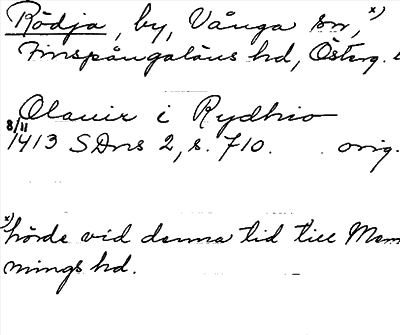 Rödja, by, Vånga sn, x)
Finspångaläns hd, Österg.
Olauir i Rydhio
8/11
1413 SDns 2, s. 710. orig.
x) hörde vid denna tid till Mem
mings hd.